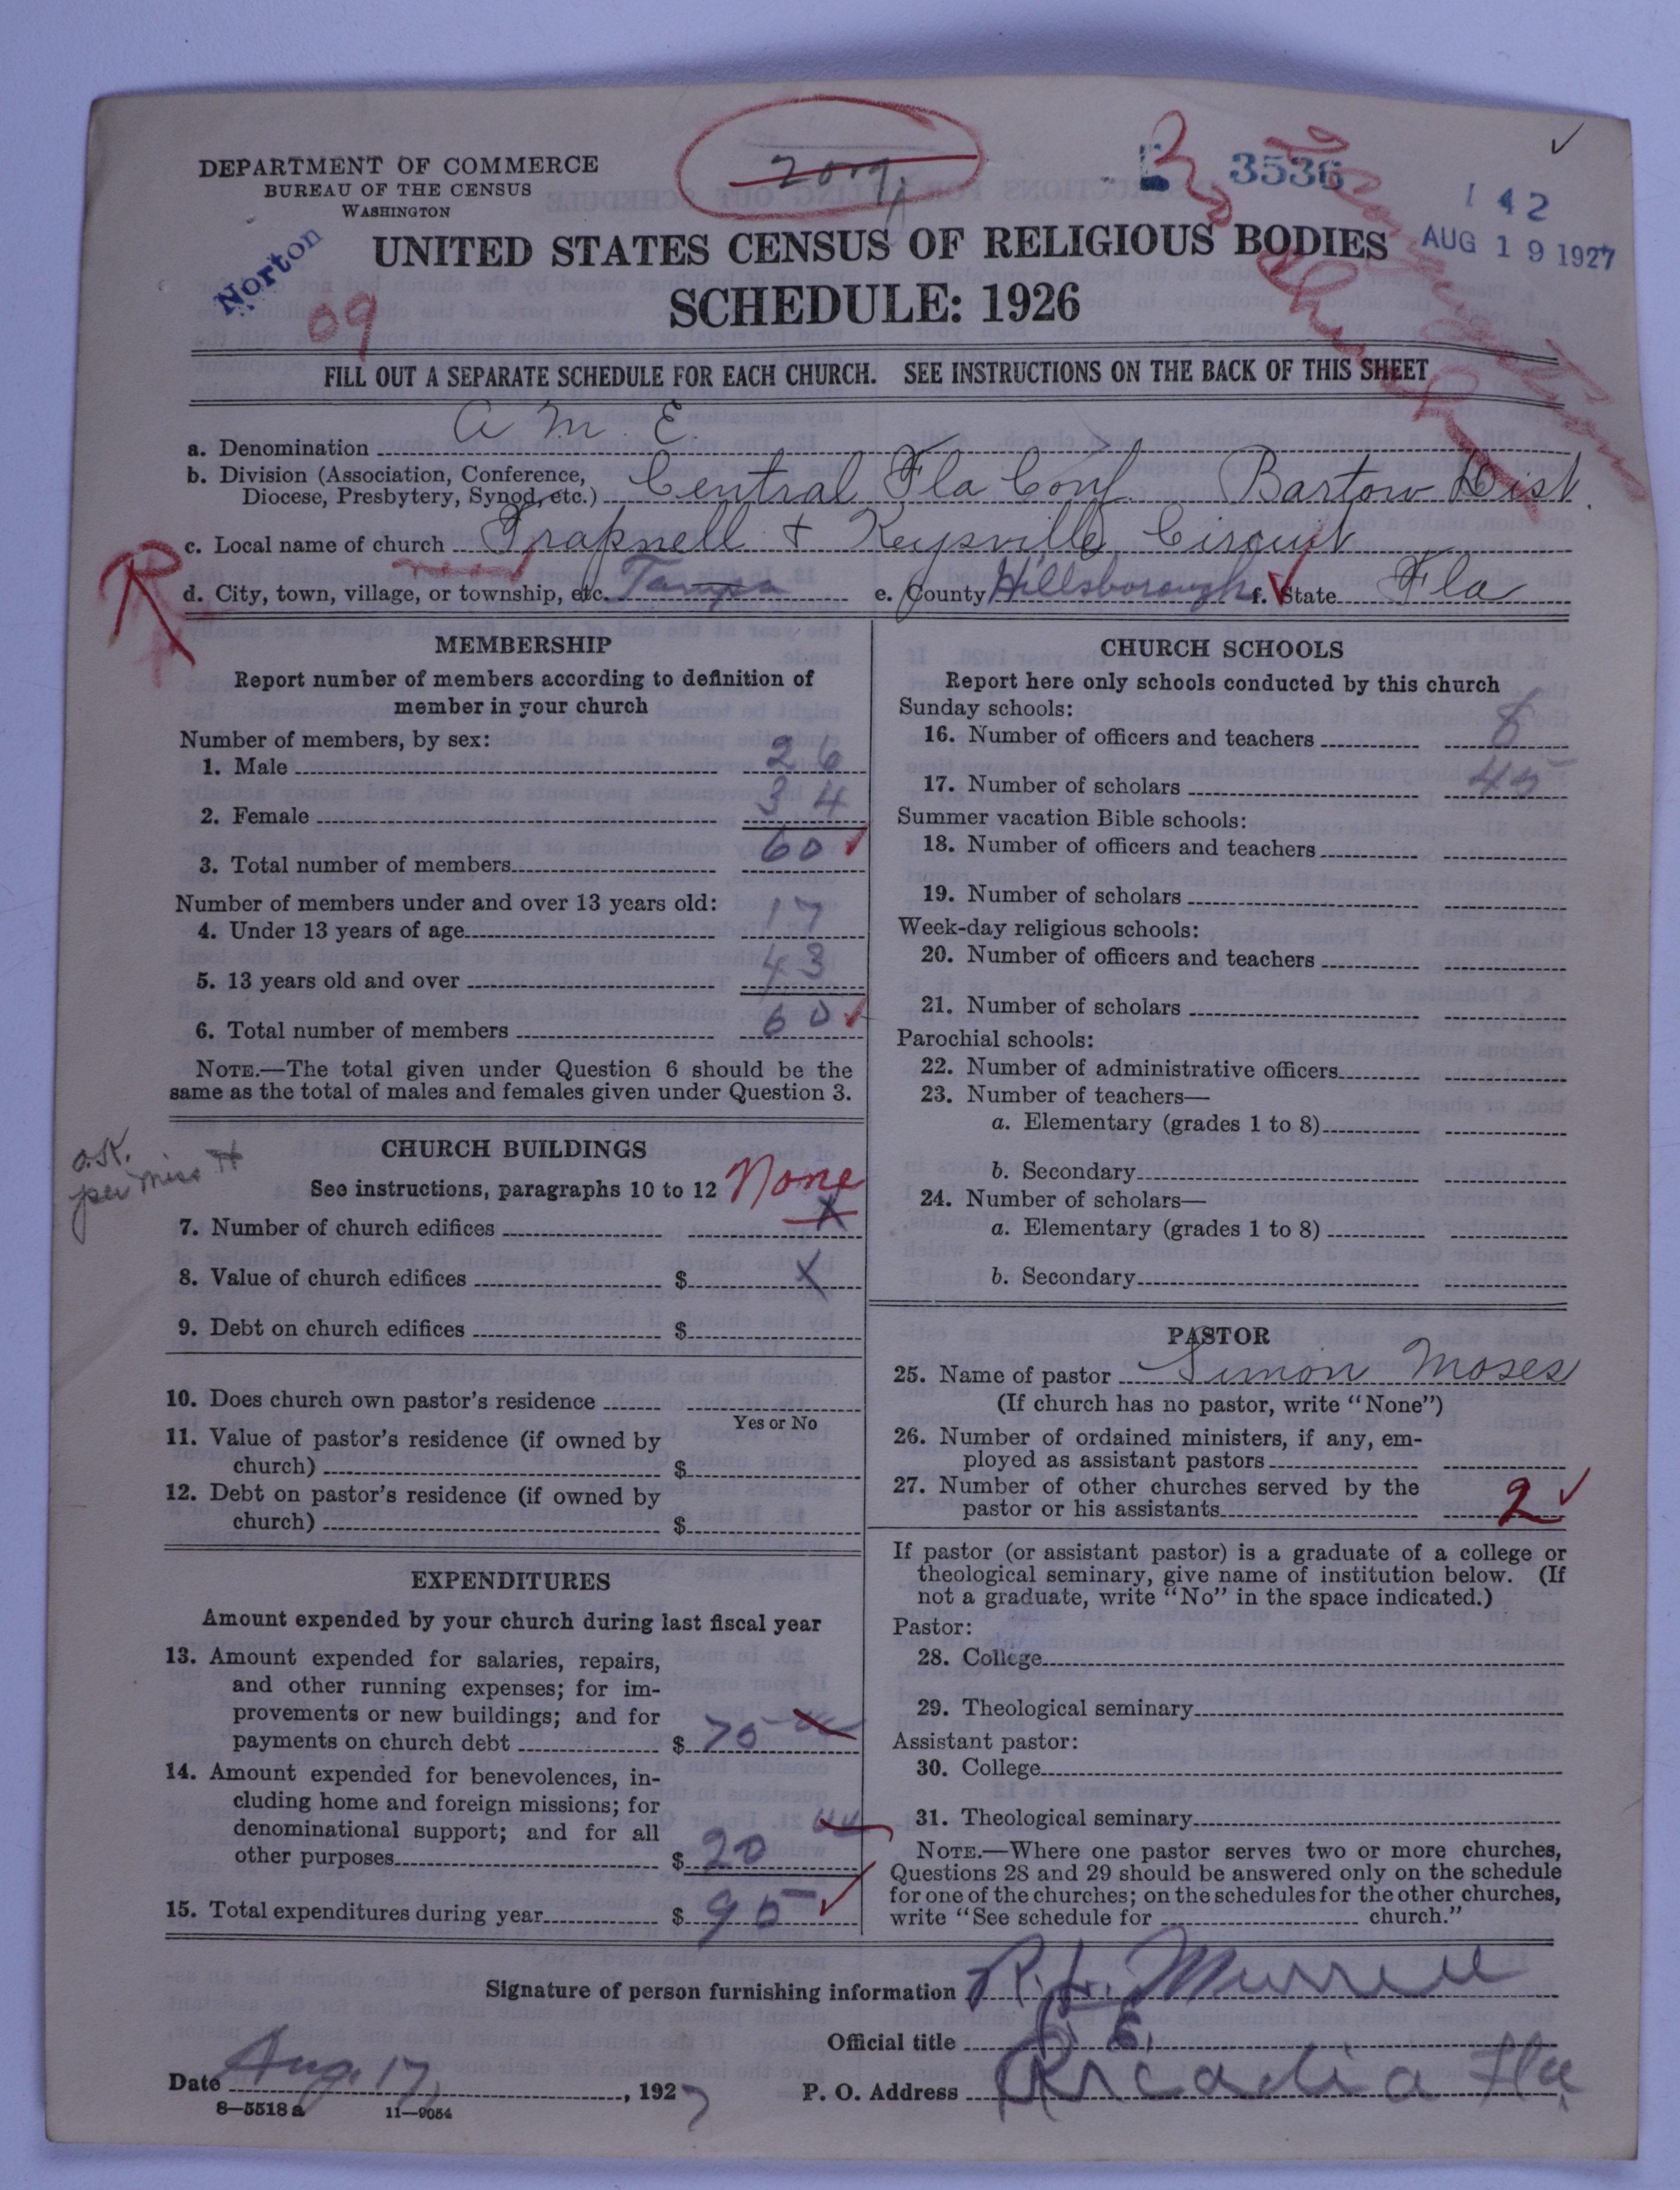 DEPARTMENT OF COMMERCE
BUREAU OF THE CENSUS
WASHINGTON
209
3536
142
AUG 19 1927
Norton
09
UNITED STATES CENSUS OF RELIGIOUS BODIES
SCHEDULE: 1926
FILL OUT A SEPARATE SCHEDULE FOR EACH CHURCH. SEE INSTRUCTIONS ON THE BACK OF THIS SHEET
a. Denomination A M E.
b. Division (Association, Conference, Diocese, Presbytery, Synod, etc.) Central Fla Conf. Bartow Dist.
c. Local name of church Trapnell + Keysville Circuit
R
d. City, town, village, or township, etc. Tampa e. County Hillsborough f. State Fla
MEMBERSHIP
Report number of members according to definition of
member in your church
Number of members, by sex:
1. Male 26
2. Female 34
3. Total number of members 60
Number of members under and over 13 years old:
4. Under 13 years of age 17
5. 13 years old and over 43
6. Total number of members 60
NOTE.—The total given under Question 6 should be the
same as the total of males and females given under Question 3.
O.K.
per Miss H
CHURCH BUILDINGS
See instructions, paragraphs 10 to 12 None
7. Number of church edifices X
8. Value of church edifices $ X
9. Debt on church edifices $
10. Does church own pastor's residence
Yes or No
11. Value of pastor's residence (if owned by
church) $
12. Debt on pastor's residence (if owned by
church) $
EXPENDITURES
Amount expended by your church during last fiscal year
13. Amount expended for salaries, repairs,
and other running expenses; for im-
provements or new buildings; and for
payments on church debt $ 75
14. Amount expended for benevolences, in-
cluding home and foreign missions; for
denominational support; and for all
other purposes $ 20
15. Total expenditures during year $ 95
CHURCH SCHOOLS
Report here only schools conducted by this church
Sunday schools:
16. Number of officers and teachers 8
17. Number of scholars 45
Summer vacation Bible schools:
18. Number of officers and teachers
19. Number of scholars
Week-day religious schools:
20. Number of officers and teachers
21. Number of scholars
Parochial schools:
22. Number of administrative officers
23. Number of teachers—
a. Elementary (grades 1 to 8)
b. Secondary
24. Number of scholars—
a. Elementary (grades 1 to 8)
b. Secondary
PASTOR
25. Name of pastor Simon Moses
(If church has no pastor, write "None")
26. Number of ordained ministers, if any, em-
ployed as assistant pastors
27. Number of other churches served by the
pastor or his assistants 2
If pastor (or assistant pastor) is a graduate of a college or
theological seminary, give name of institution below. (If
not a graduate, write "No" in the space indicated.)
Pastor:
28. College
29. Theological seminary
Assistant pastor:
30. College
31. Theological seminary
NOTE.—Where one pastor serves two or more churches,
Questions 28 and 29 should be answered only on the schedule
for one of the churches; on the schedules for the other churches,
write "See schedule for church."
Signature of person furnishing information R. H. Murrell
Official title P. E.
Date Aug. 17, 1927
P. O. Address Arcadia Fla.
8—5518a 11—9054